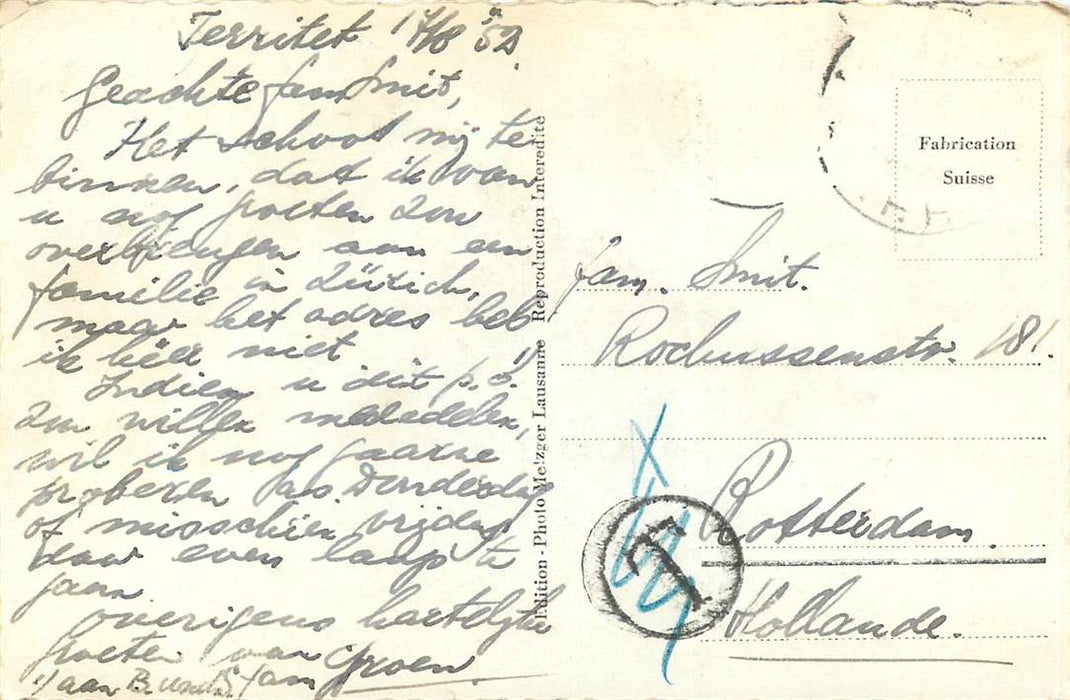 Territet
Geachte fam Smit,
Het schoot mij te
binnen, dat ik van
u nog groeten zou
overbrengen aan een
familie in Zürich,
maar het adres heb
ik hier niet
Indien u dit p.o. 1)
zou willen mededelen,
wil ik nog gaarne
proberen a.s. Donderdag
of misschien vrijdag
daar even langs te
gaan
overigens hartelijke
groeten van fam Groen.
1) aan B.
Edition - Photo Metzger Lausanne Reproduction Interedite
Fabrication
Suisse
fam. Smit.
Rochussenstr. 181.
Rotterdam.
Hollande.
T